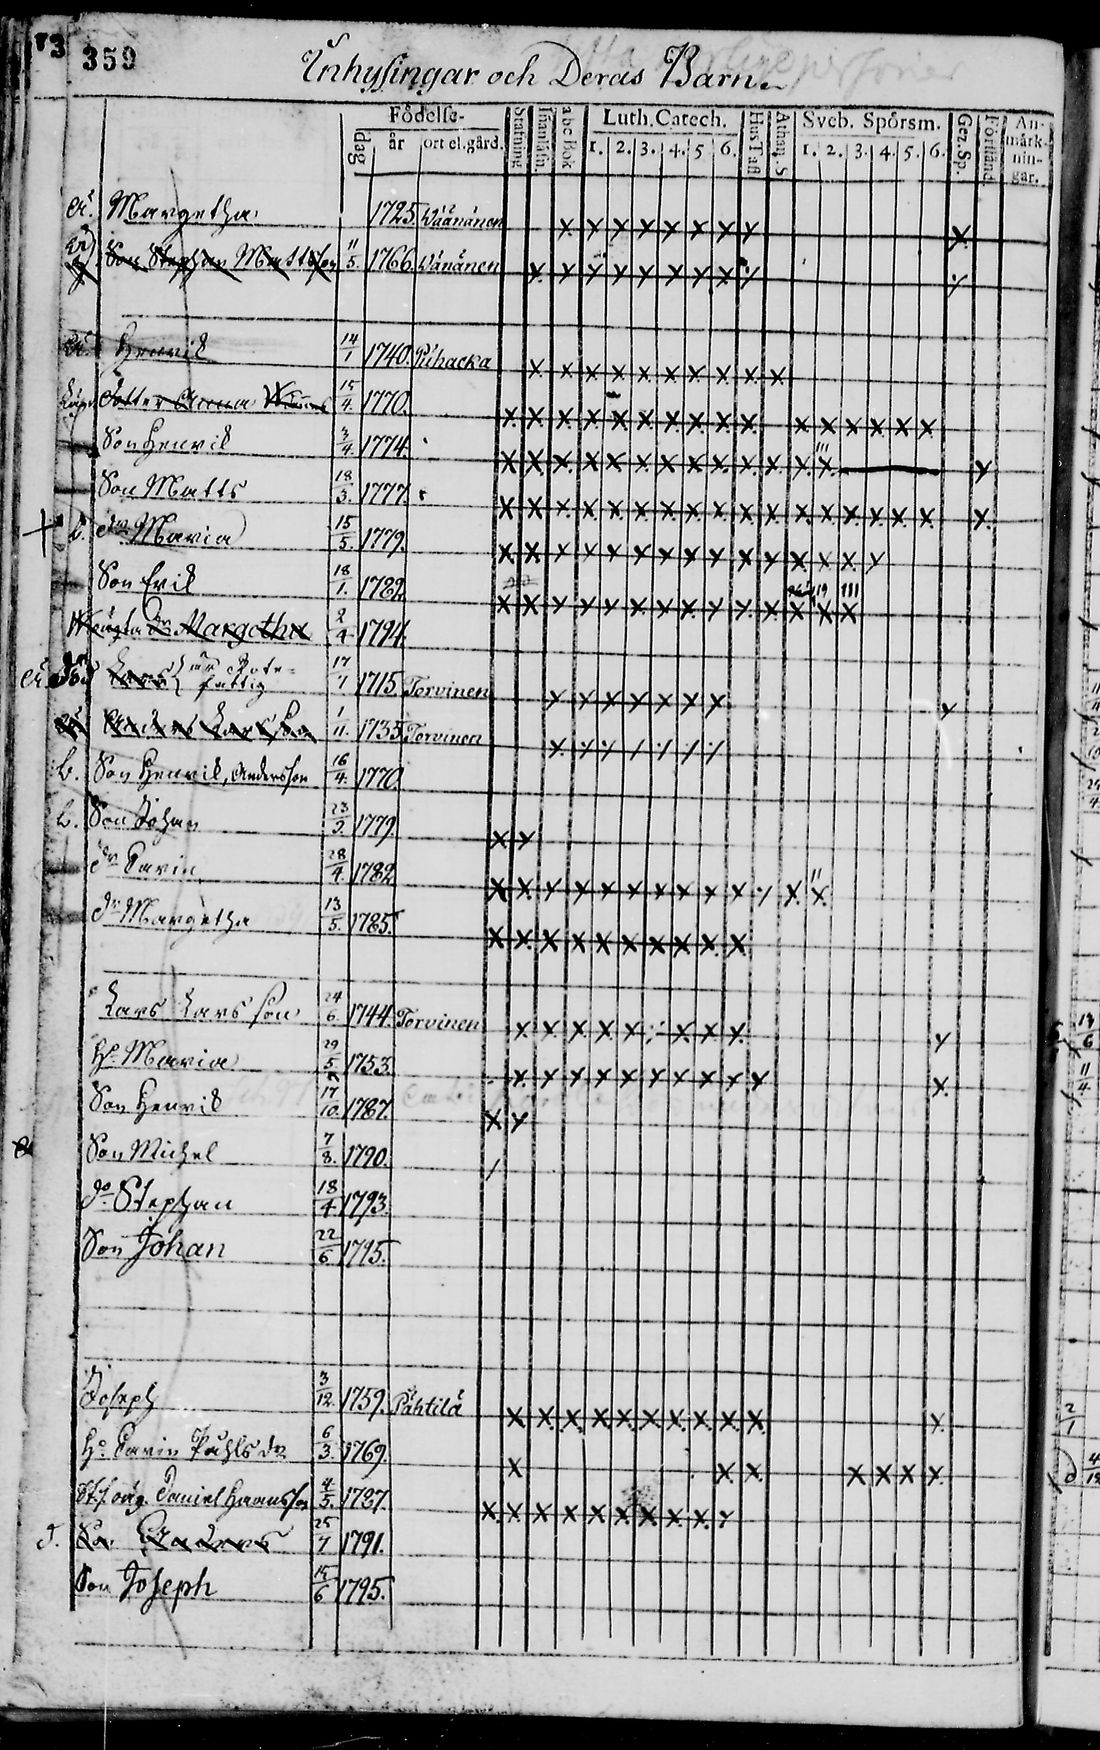 73 359
Inhysingar och Deras Barn.
Födelse-
dag år ort el. gård. Stafning Innanläsn. abc Bok Luth. Catech. 1. 2. 3. 4. 5 6. Hus Tafl Athan. S Sveb. Spörsm. 1. 2. 3. 4. 5. 6. Ger. Sp. Förstånd. An-
märk-
nin-
gar.
Margetha 1725 Wäänänen
Son Stephan Mattsson 11/5. 1766. Wänänen
Henrik 14/1 1740. Puhacka
dotter Anna 15/4. 1770.
Son Henrik 3/4. 1774.
Son Matts 18/3. 1777.
b. dr Maria 15/5. 1779.
Son Erik 18/1. 1782.
dr Margetha 2/4 1794.
död Lars är Rote-
fattig 17/1 1715 Torvinen
Anders Larsson 1/11. 1735 Torvinen
b. Son Henrik, Andersson 16/4. 1770.
b. Son Johan 23/5. 1779
dr Carin 28/4. 1782
dr Margetha 13/5. 1785
Lars Larsson 24/6. 1744. Torvinen
Ho Maria 29/5 1753.
Son Henrik 17/10. 1787.
Son Michel 7/8. 1790.
do Stephan 18/4 1793.
Son Johan 22/6 1795.
Joseph 3/12. 1759. Pähtilä
Ho Carin Påhls dr 6/3. 1769.
Daniel Hansson 4/5. 1787.
d. Son Anders 25/7 1791.
Son Joseph 15/6 1795.